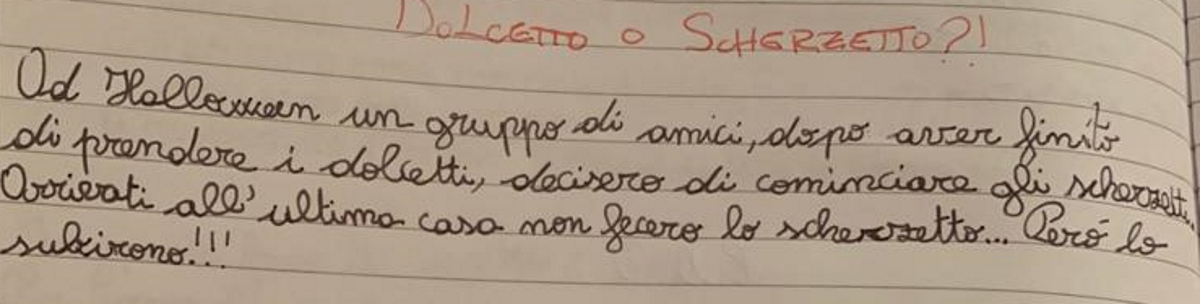 DOLCETTO O SCHERZETTO?!
Ad Halloween un gruppo di amici, dopo aver finito
di prendere i dolcetti, decisero di cominciare gli scherzetti.
Arrivati all'ultima casa non fecero lo scherzetto... Però lo
subirono!!!